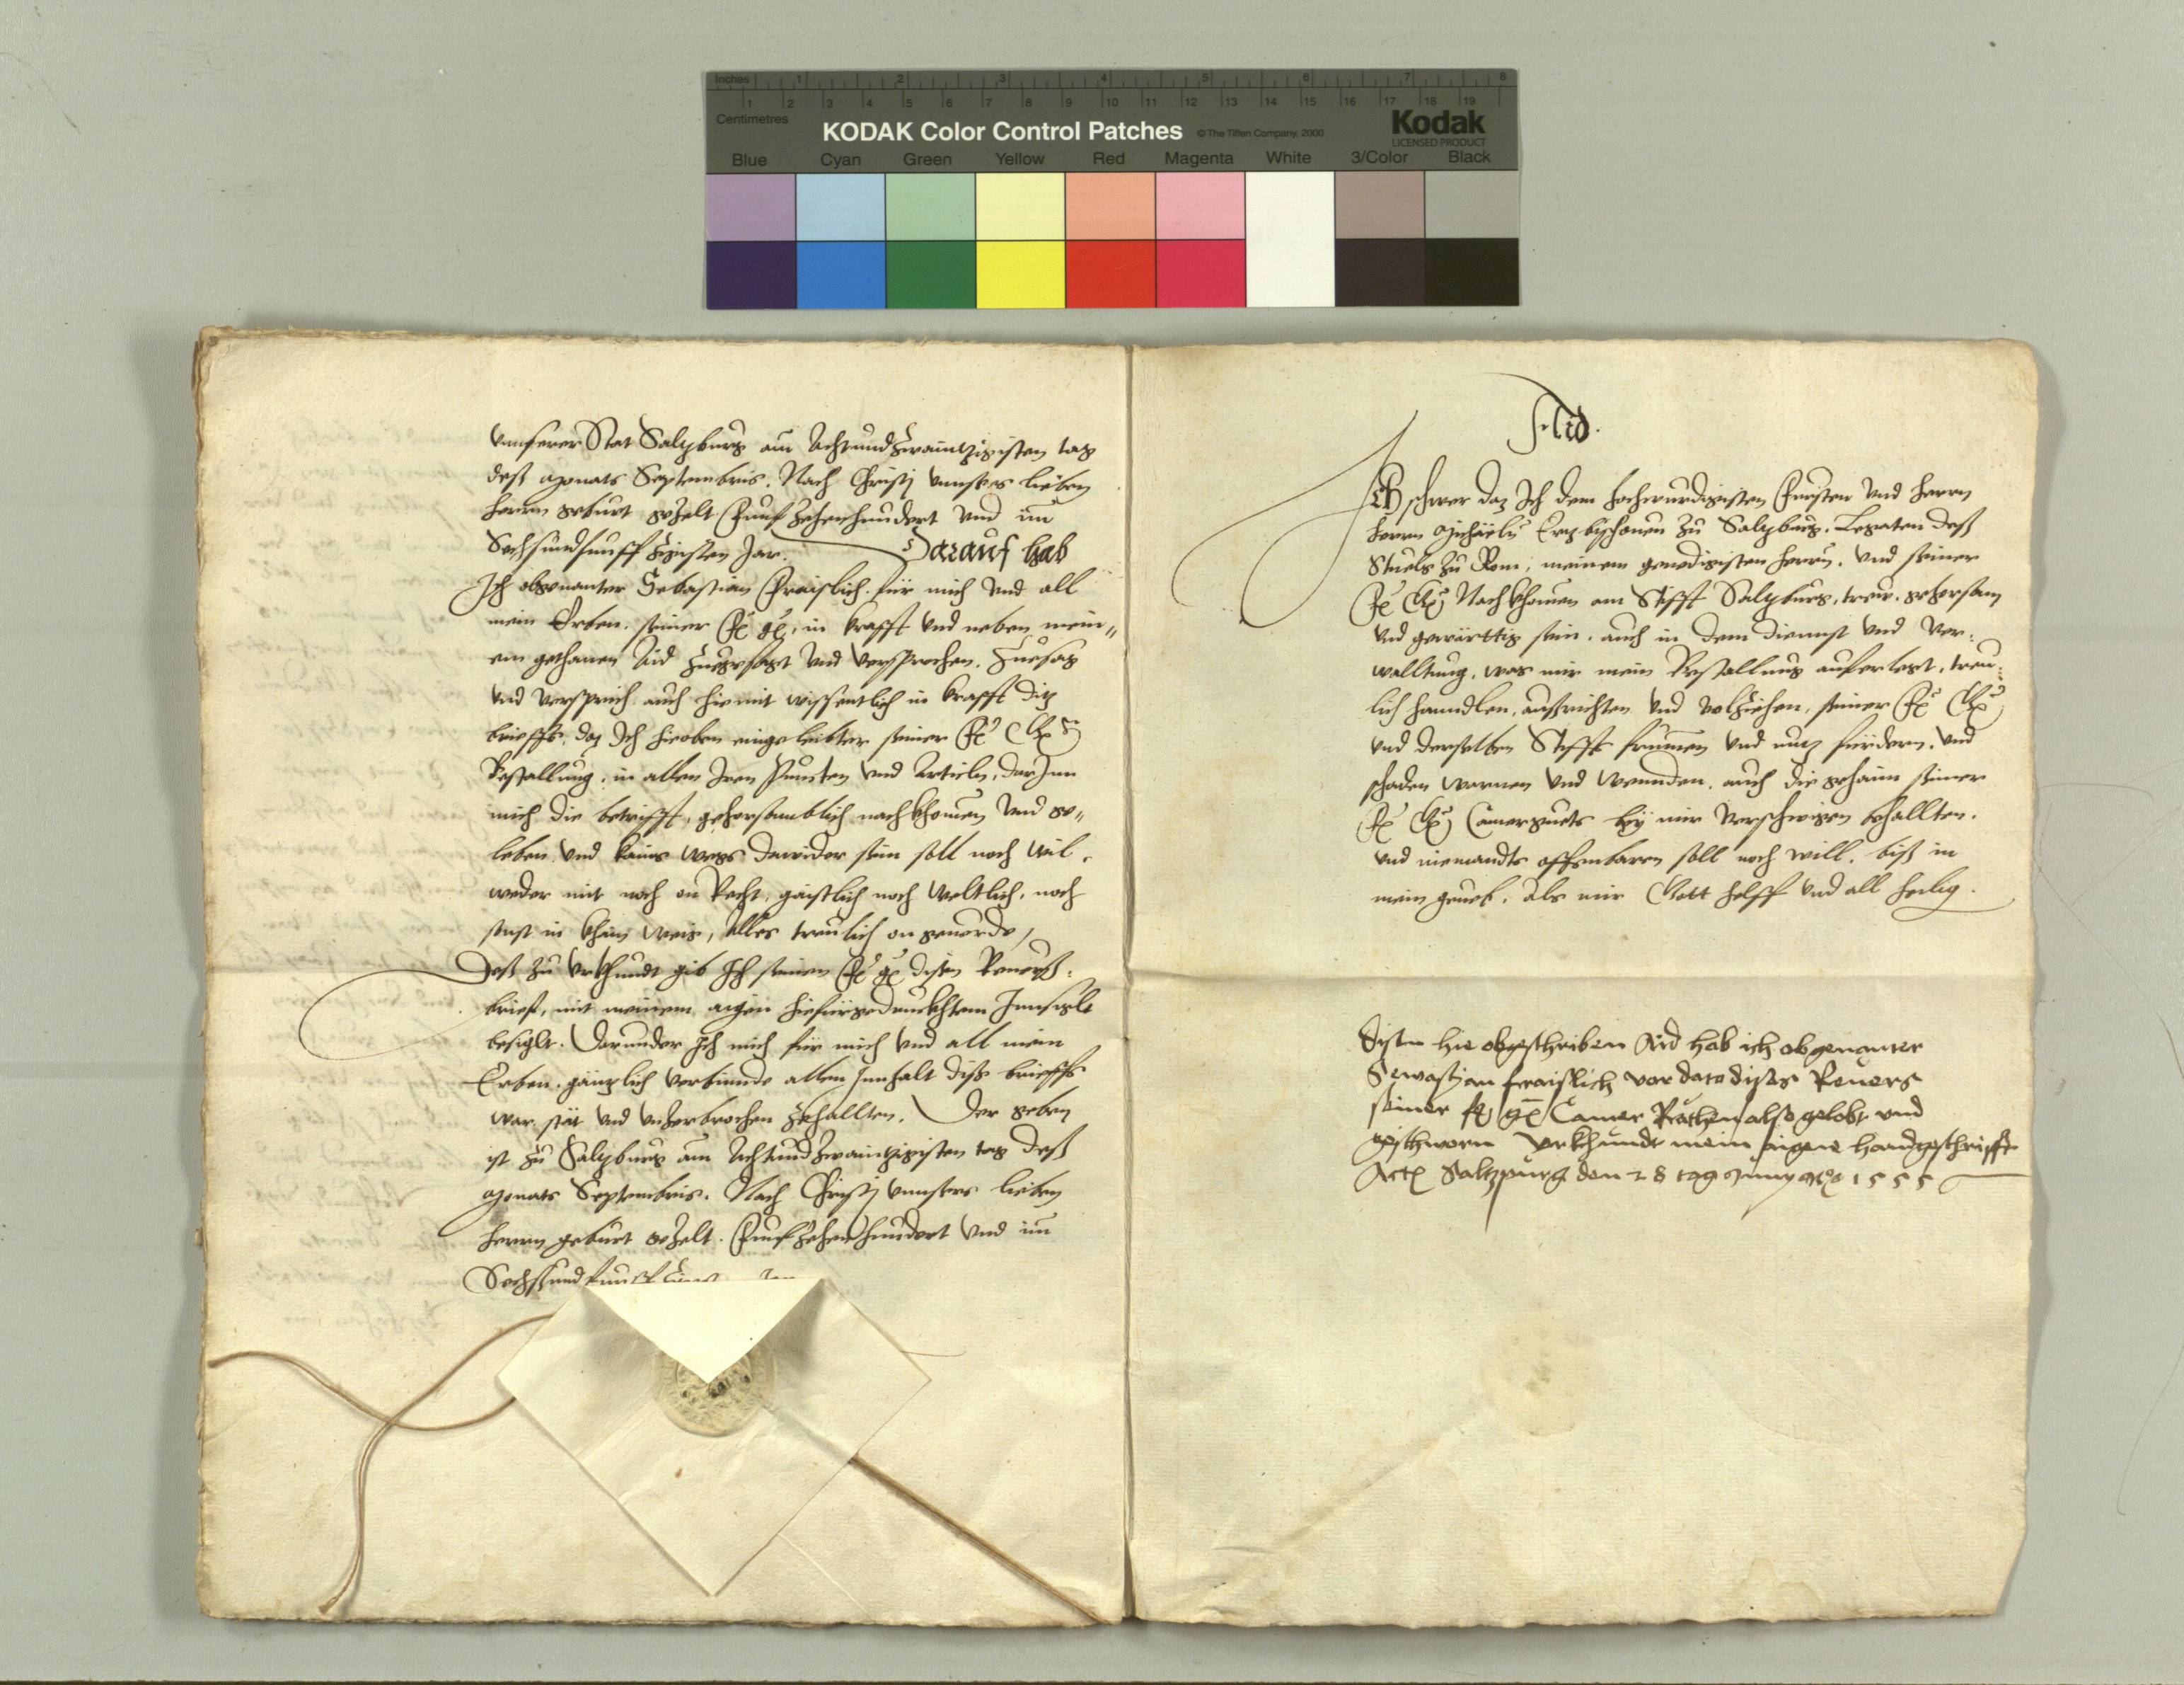 Inches 1 2 3 4 5 6 7 8
1 2 3 4 5 6 7 8 9 10 11 12 13 14 15 16 17 18 19
Centimetres
KODAK Color Control Patches © The Tiffen Company, 2000 Kodak
LICENSED PRODUCT
Blue Cyan Green Yellow Red Magenta White 3/Color Black
vnnserer Stat Salzburg am Achtundzwaintzigisten tag
deß Monats Septembris. Nach Christj vnnsers lieben
herrn geburt gezelt Funfzehenhundert vnd im
Sechsundfunfftzigisten Jar. Darauf hab
Ich obgenanter Sebastian Fraislich für mich vnd all
mein Erben, seiner in krafft vnd neben mein„
em gethanen Aid zuegesagt vnd versprochen, Zuesag
vnd versprich auch hiemit wissentlich in krafft ditz
brieffs, daz Ich hieoben eingeleibter seiner
Bestallung, in allen Iren Puncten vnd Articln, darJnn
mich die betrifft, gehorsamblich nachkhomen vnd ge„
leben, vnd kains wegs darwider sein soll noch wil,
weder mit noch on Recht, gaistlich noch weltlich, noch
sonst in khain weis, Alles treulich on geuerde,
Deß zu vrkhundt gib Ich seinen disen Reuerß„
brief, mit meinem aigen hiefürgedruckhtem Innsigl
besiglt. Darunder Ich mich für mich vnd all mein
Erben, gänzlich verbinnde allen Innhalt diß brieffs
war, stät vnd vnzerbrochen zehallten. Der geben
ist zu Salzburg am Achtundzwaintzigisten tag deß
Monats Septembris. Nach Christj vnnsers lieben
herrn geburt gezelt. Funfzehenhundert vnd im
Aid.
Ich schwer daz Ich dem hochwurdigisten Fursten vnd herrn
herrn Michaeln Erzbischouen zu Salzburg, Legaten deß
Stuels zu Rom, meinem genedigisten herrn, vnd seiner
Nachkhomen am Stifft Salzburg, treu, gehorsam
vnd gewärttig sein, auch in dem diennst vnd Ver„
walltung, was mir mein Bestallung auferlegt, treu„
lich hanndlen, außrichten vnd volziehen, seiner
vnd derselben Stiffts frummen vnd nutz fürdern, vnd
schaden warnen vnd wennden, auch die gehaim seiner
Camerguets bey mir verschwigen behallten,
vnd niemandts offenbaren soll noch will, biß in
mein grueb, Als mir Gott helff vnd all heilig.
Disen hie obgeschriben Aid hab ich obgenanter
Sewastian fraislich vor dato dises Reuers
seiner Camer Räthen also gelobt vnd
geschworn Vrkhundt mein aigne handgschrifft
Saltzpurg den 28 tag 1555